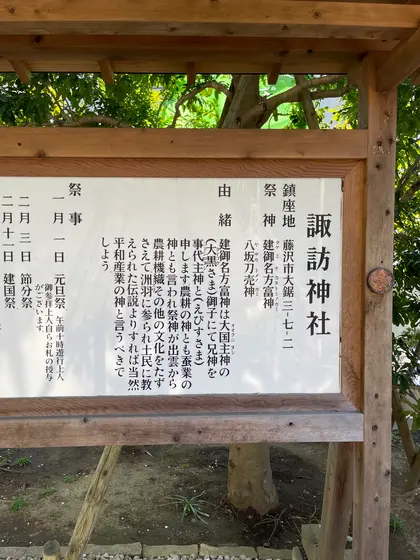 諏訪神社
鎮座地　藤沢市大鋸三・七・二
祭　神　建御名方富神
八坂刀売神
由　緒　建御名方富神は大国主神の
(大黒さま)御子にて兄神を
事代主神と(えびすさま)
申します農耕の神とも蚕業の
神とも言われ祭神が出雲から
農耕機織その他の文化をたず
さえて洲羽に参られ土民に教
えられた伝説よりすれば当然
平和産業の神と言うべきで
しよう。
祭　事
一月一日　元旦祭　午前十時遊行上人
御参拝上人自らお札の授与
がございます。
二月三日　節分祭
二月十一日　建国祭